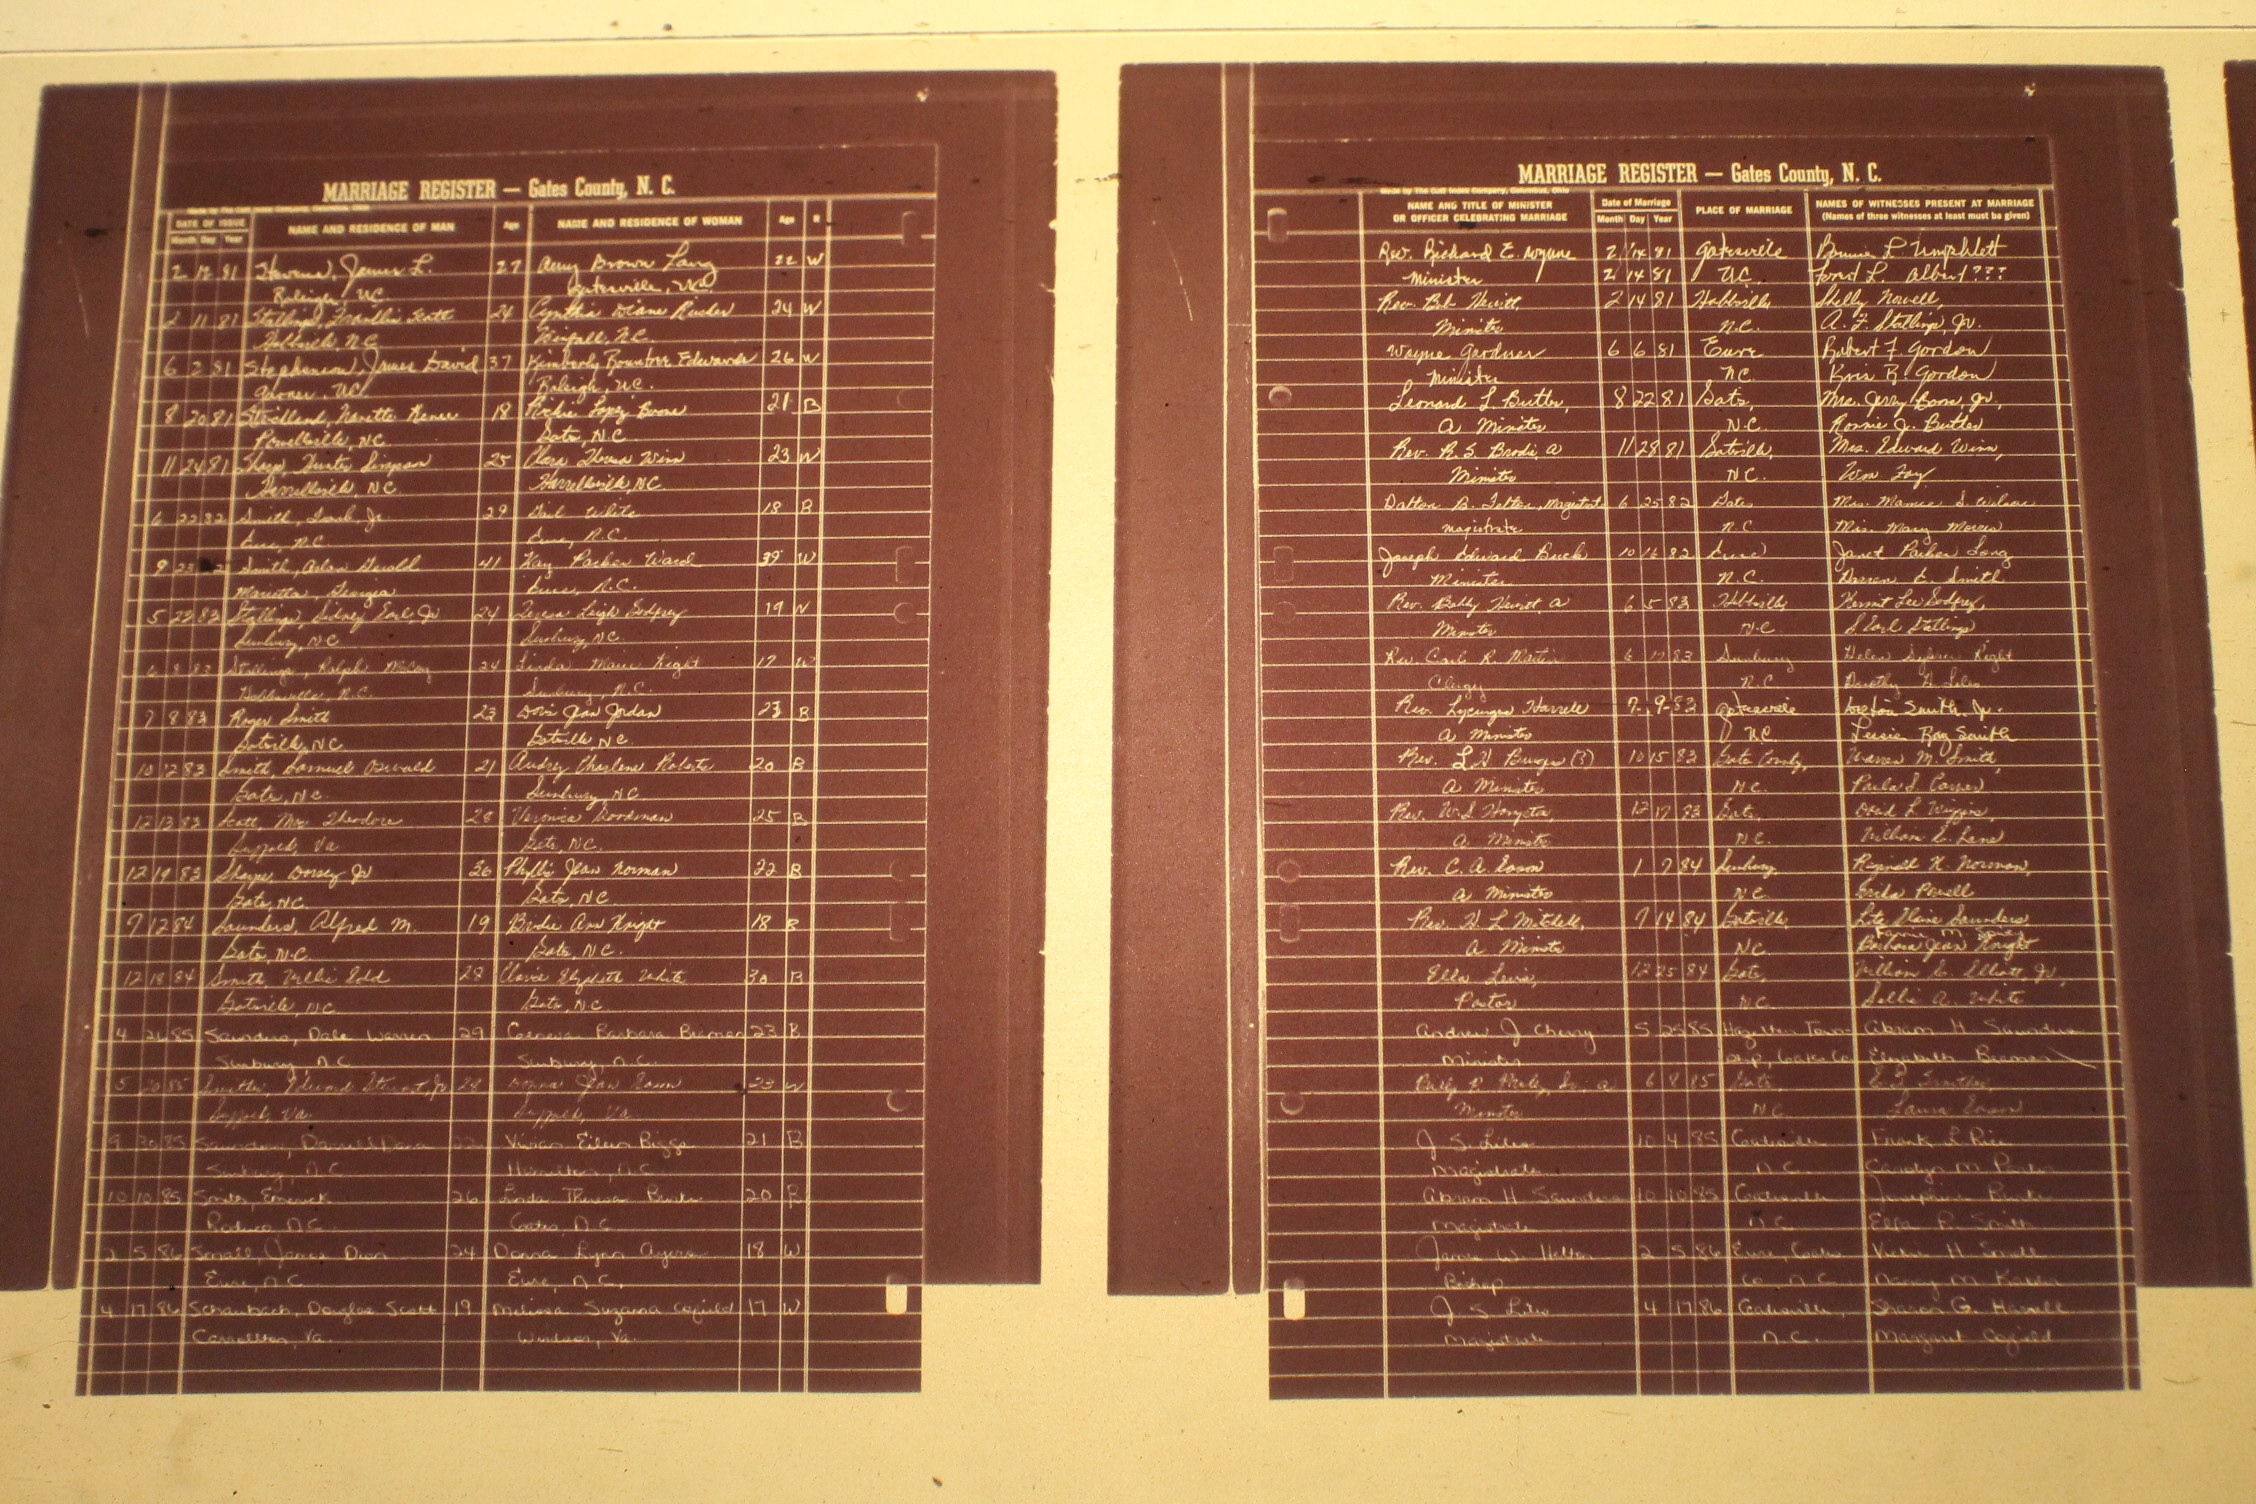 MARRIAGE REGISTER — Gates County, N. C.
DATE OF ISSUE
Month Day Year
NAME AND RESIDENCE OF MAN
Age
NAME AND RESIDENCE OF WOMAN
Age
R
2 12 81 Stevens, James L. 27 Amy Brown Lang 22 W
Raleigh, NC Gatesville, NC
2 11 81 Stallings, Franklin Scott 24 Cynthia Diane Rusher 24 W
Hobbsville, N.C. Winfall, N.C.
6 2 81 Stephenson, James David 37 Kimberly Rountree Edwards 26 W
Garner, NC Raleigh, NC.
8 20 81 Strickland, Nanette Renee 18 Richie Lopez Boone 21 B
Powellsville, NC Gates, N.C
11 24 81 Sharp, Hunter Simpson 25 Clara Theresa Winn 23 W
Harrellsville, NC Harrellsville, NC
6 22 82 Smith, Jr. 29 Gail White 18 B
Eure, N.C. Eure, N.C.
9 23 Smith, Arlon Gerald 41 Kay Parker Ward 39 W
Marietta, Georgia Eure, N.C.
5 29 83 Stallings, Sidney Earl, Jr 24 Teresa Leigh Godfrey 19 W
Sunbury, NC Sunbury, NC.
6 8 83 Stallings, Ralph McCoy 24 Linda Marie Hight 17 W
Hobbsville, N.C. Sunbury, N.C.
7 8 83 Roger Smith 23 Doris Jean Jordan 23 B
Gatesville, NC Gatesville, NC.
10 12 83 Smith, Samuel Oswald 21 Audrey Charlene Roberts 20 B
Gates, NC. Sunbury, NC
12 13 83 Scott, Theodore 28 Veronica Goodman 25 B
Suffolk, Va Gates, NC.
12 19 83 Sharpe, Dorsey Jr 26 Phyllis Jean Norman 22 B
Gates, NC. Gates, NC
7 12 84 Saunders, Alfred M. 19 Birdie Ann Knight 18 B
Gates, N.C. Gates, NC.
12 18 84 Smith, Willie Edd 28 Elizabeth White 30 B
Gatesville, NC Gates, NC
4 26 85 Saunders, Dale Warren 29 Geneva Barbara Beamon 23 B
Sunbury, NC Sunbury, N.C.
5 20 85 Smither, Edward Stewart, Jr 28 Donna Jean Eason 23 W
Suffolk, Va. Suffolk, Va
9 30 85 Saunders, Darnell Dana 22 Vivian Eileen Biggs 21 B
Sunbury, N.C. Hamilton, N.C.
10 10 85 Smith, Emerick 26 Linda Theresa Burke 20 B
Roduco, N.C. Gates, N.C.
2 5 86 Small, James Dion 24 Donna Lynn Ayers 18 W
Eure, N.C. Eure, N.C.
4 17 86 Schaubach, Douglas Scott 19 Melissa Suzanna Cofield 17 W
Carrollton, Va. Windsor, Va.
MARRIAGE REGISTER — Gates County, N. C.
Made by The Cott Index Company, Columbus, Ohio
NAME AND TITLE OF MINISTER
OR OFFICER CELEBRATING MARRIAGE
Date of Marriage
Month Day Year
PLACE OF MARRIAGE
NAMES OF WITNESSES PRESENT AT MARRIAGE
(Names of three witnesses at least must be given)
Rev. Richard E. Wynne 2 14 81 Gatesville Bonnie L. Umphlett
Minister 2 14 81 NC. L. Albert???
Rev. Bob Hewitt, 2 14 81 Hobbsville Shelly Nowell,
Minister N.C. A. F. Stallings, Jr.
Wayne Gardner 6 6 81 Eure Robert F. Gordon
Minister NC. Kris R. Gordon
Leonard L. Butler, 8 22 81 Gates, Mrs. Jerry Boone, Jr.,
A Minister N.C. Ronnie J. Butler
Rev. R. S. Brodie, A 11 28 81 Gatesville, Mrs. Edward Winn,
Minister NC. Wm Fay
Dalton B. Felton, Magistrate 6 25 82 Gates Mrs. Mamie S. Wilson
magistrate N.C Mrs. Mary Morris
Joseph Edward Buck 10 16 82 Eure Janet Parker Long
Minister N.C. Darren E. Smith
Rev. Bobby Hewitt, A 6 5 83 Hobbsville Kermit Lee Godfrey,
Minister N.C. S. Earl Stallings
Rev. Carl R. Martin 6 17 83 Sunbury Helen Hight
Clergy N.C Dorothy H. Liles
Rev. Lycurgus Harrell 7-9-83 Gatesville Smith, Jr.
A Minister N.C. Ray Smith
Rev. L H (?) 10 15 83 Gates County, Warren M. Smith,
A Minister N.C. Paula S.
Rev. W. S. 12 17 83 Gates, David L. Wiggins,
A Minister N.C. William E. Lane
Rev. C. A. Eason 1 7 84 Sunbury, Reginald N. Norman,
A Minister NC. Powell
Rev. H. L. Mitchell, 7 14 84 Gatesville, Saunders
Fannie M.
A Minister NC. Barbara Jean Knight
Ella Lewis, 12 25 84 Gates, William E. Elliott Jr.,
Pastor NC. Sellie A. White
Andrew J Cherry 5 25 85 Hazelton Town- Abram H. Saunders
Minister ship, Gates Co Elizabeth Beamon
6 8 85 Gates,
Minister NC. Laura Eason
J. S. Liles 10 4 85 Gatesville Frank L Rice
Magistrate N.C. Carolyn M. Parker
Abram H Saunders 10 10 85 Gatesville Josephine Burke
Magistrate N.C. Ella R. Smith
James W. Helton 2 5 86 Eure, Gates Vickie H Small
Bishop Co. N.C. Nancy M.
J. S Liles 4 17 86 Gatesville, Sharon G. Harrell
Magistrate N.C. Margaret Cofield